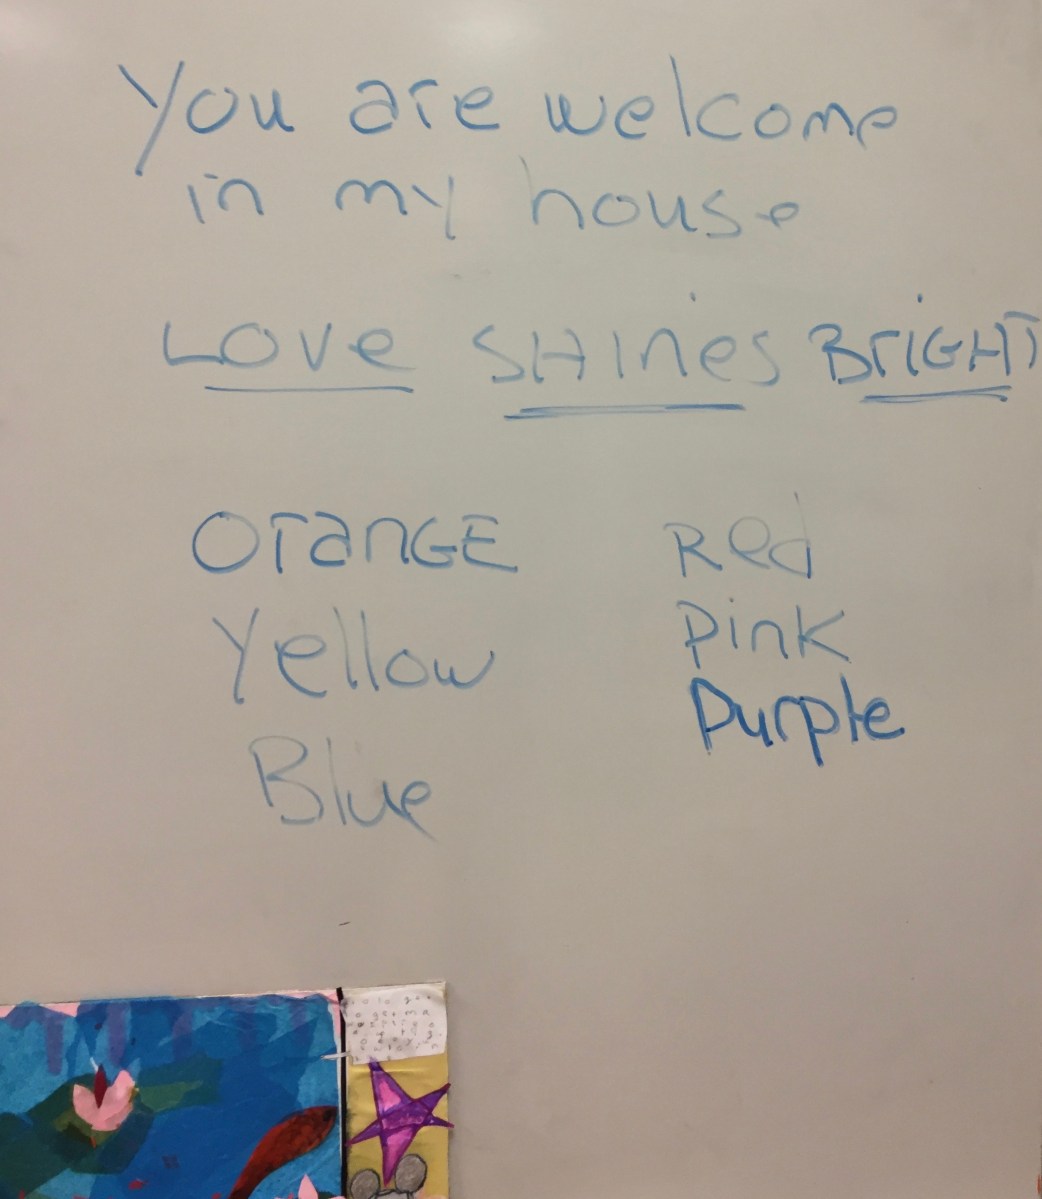 You are welcome
in my house
LOVe SHineS BriGHT
OranGE
Yellow
Blue
Red
Pink
Purple